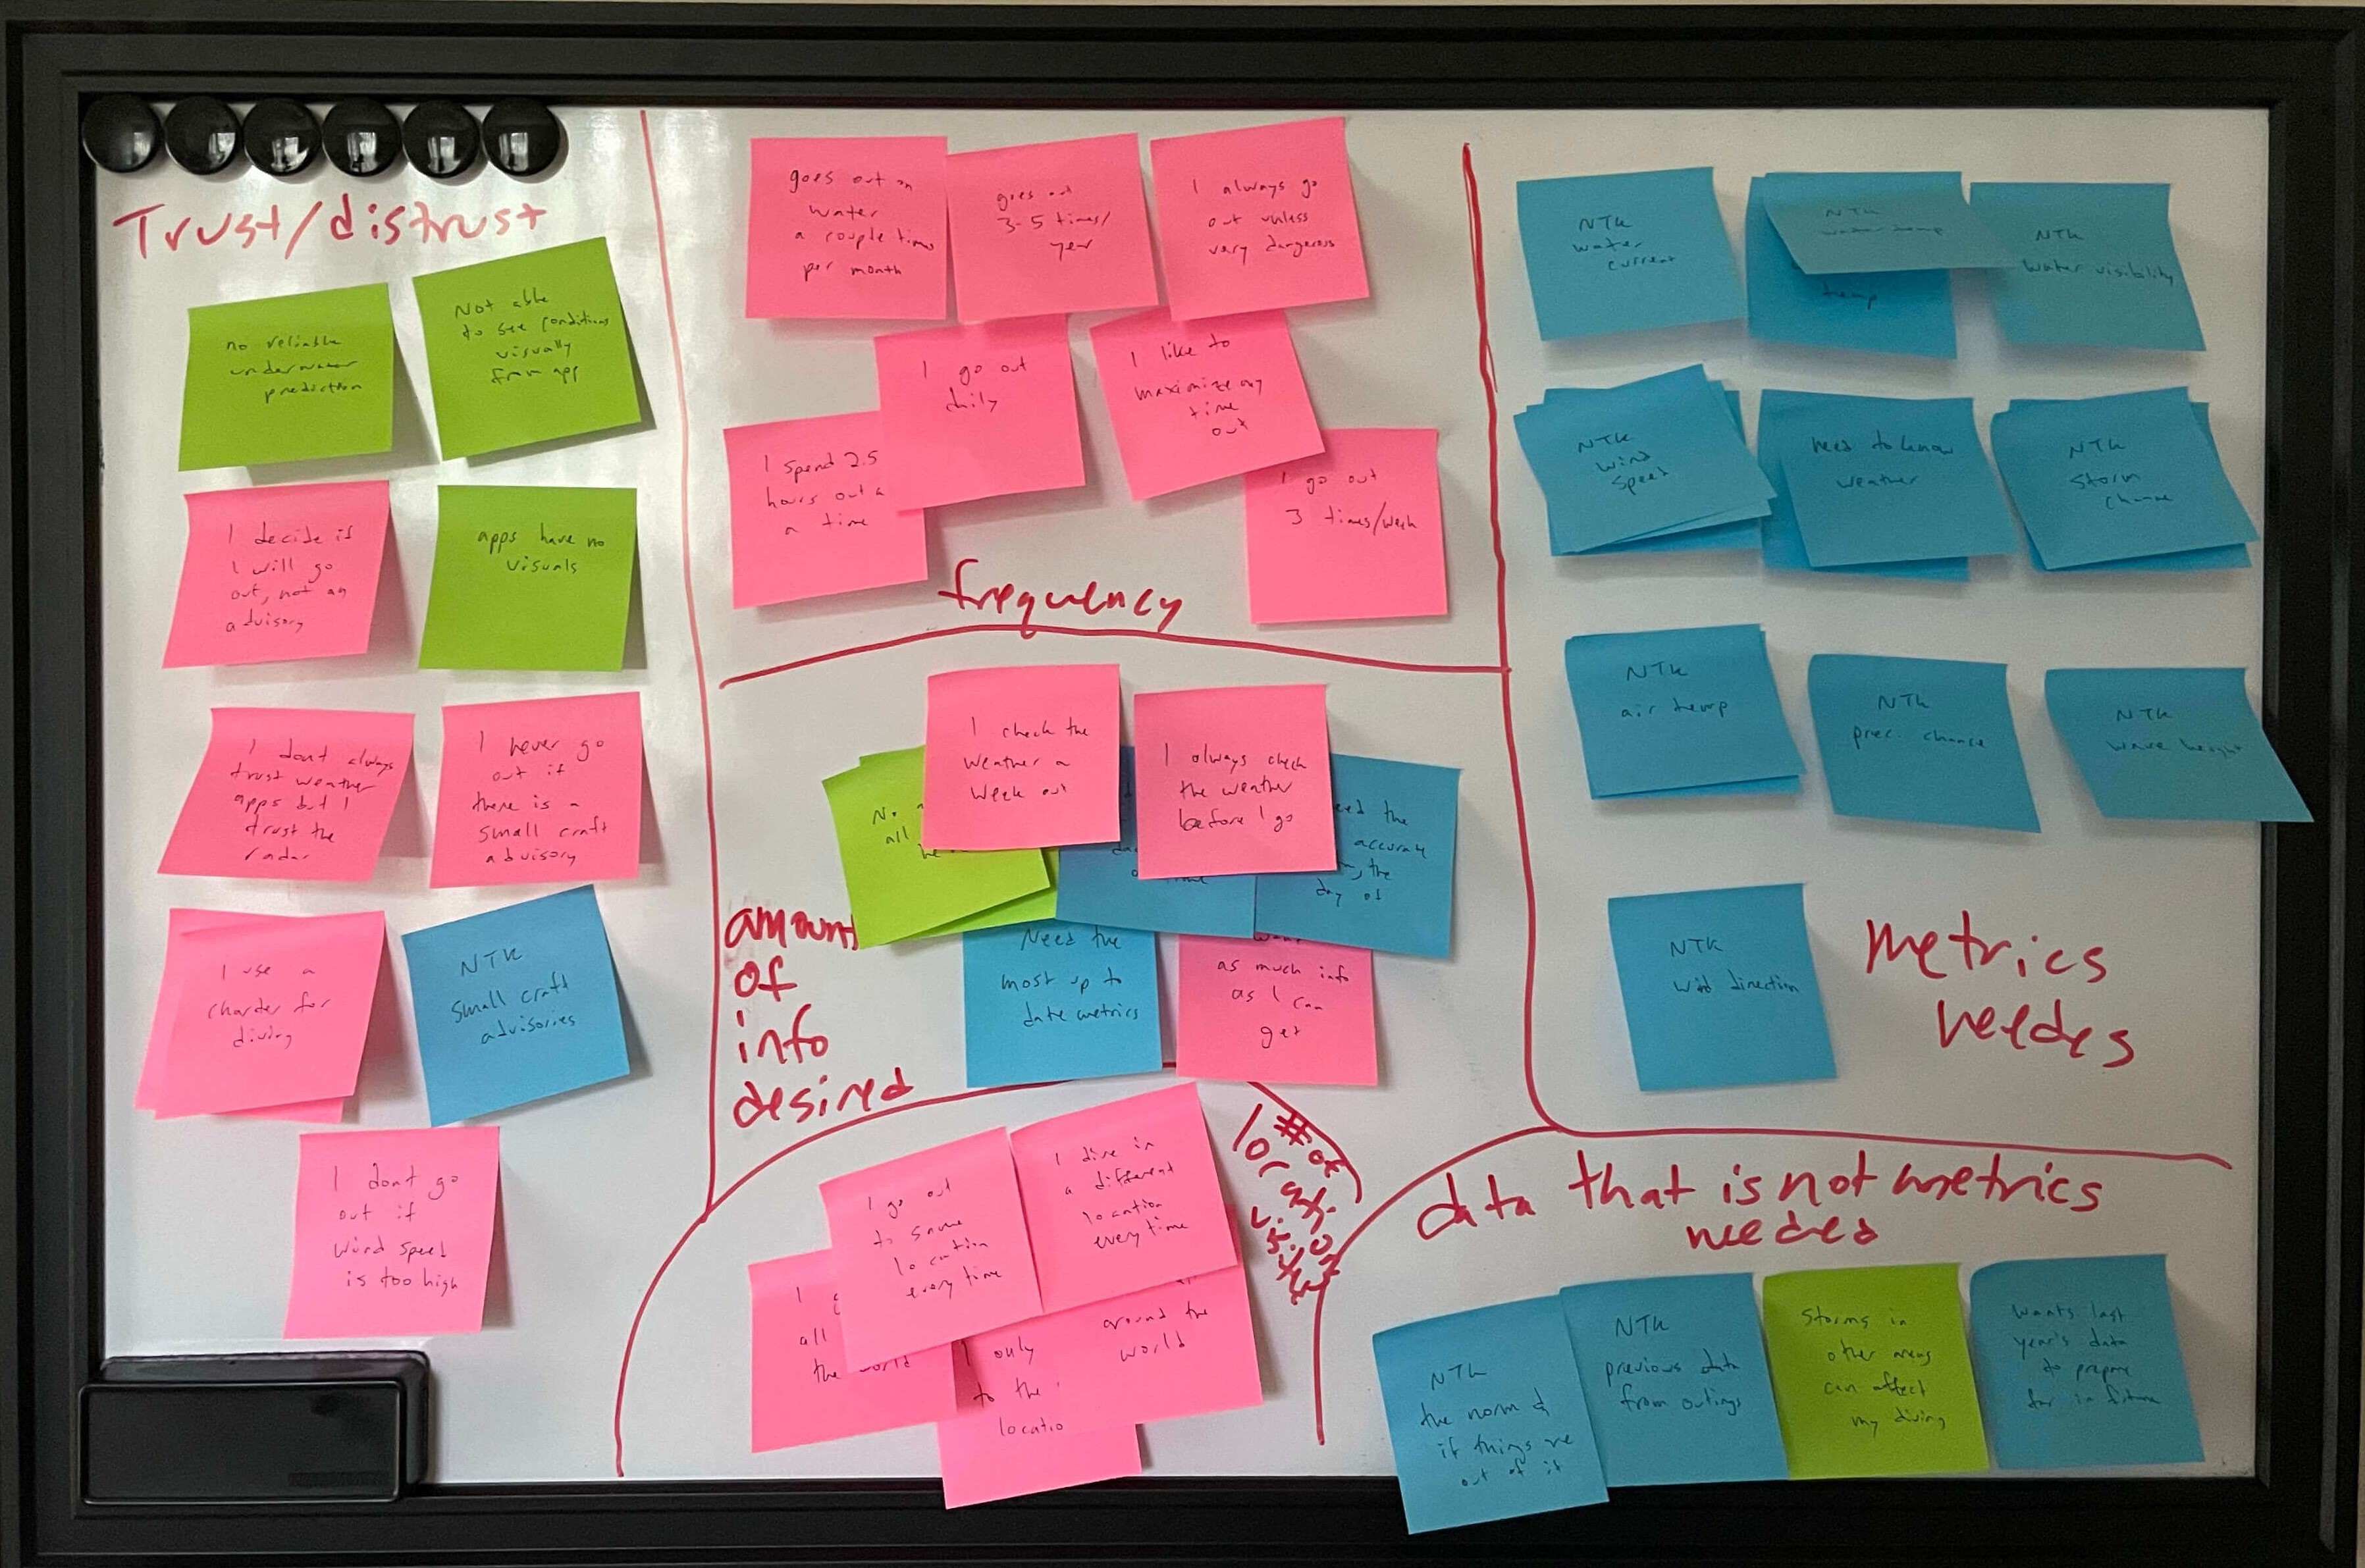 Trust/distrust
no reliable
underwater
prediction
Not able
to see conditions
visually
from app
I decide if
I will go
out, not an
advisory
apps have no
visuals
I dont always
trust weather
apps but I
trust the
radar
I never go
out if
there is a
small craft
advisory
I use a
charder for
diving
NTK
small craft
advisories
I dont go
out if
wind speed
is too high
goes out on
water
a couple times
per month
goes out
3-5 times/
year
I always go
out unless
very dangerous
I go out
daily
I like to
maximize my
time
out
I spend 2.5
hours out a
a time
I go out
3 times/week
frequency
I check the
weather a
week out
I always check
the weather
before I go
all
the
accurate
the
day of
Need the
most up to
date metrics
as much info
as I can
get
amount
of
info
desired
# of
locations
I go out
to same
location
every time
I dive in
a different
location
every time
I
all
the world
I only
to the
locatio
around the
world
NTK
water
current
NTK
water temp
temp
NTK
water visibility
NTK
wind
speed
need to know
weather
NTK
storm
chance
NTK
air temp
NTK
prec. chance
NTK
wave height
NTK
wind direction
Metrics
needes
data that is not metrics
needed
NTK
the norm &
if things are
out of it
NTK
previous data
from outings
Storms in
other areas
can affect
my diving
wants last
year's data
to prepare
for in future